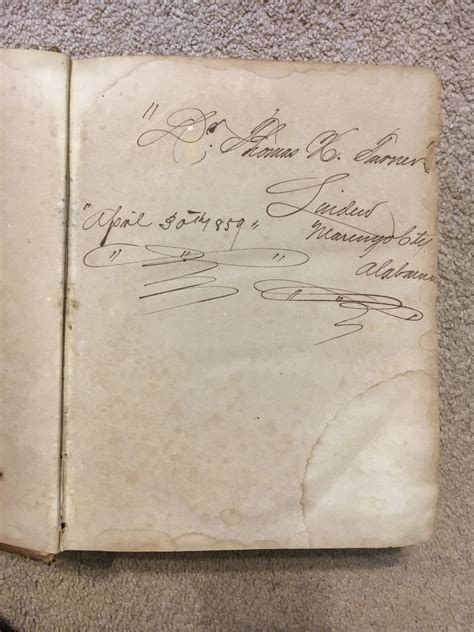 "Dr. Thomas H. Turner
Linden
"April 30th 1859"
Marengo City
Alabama